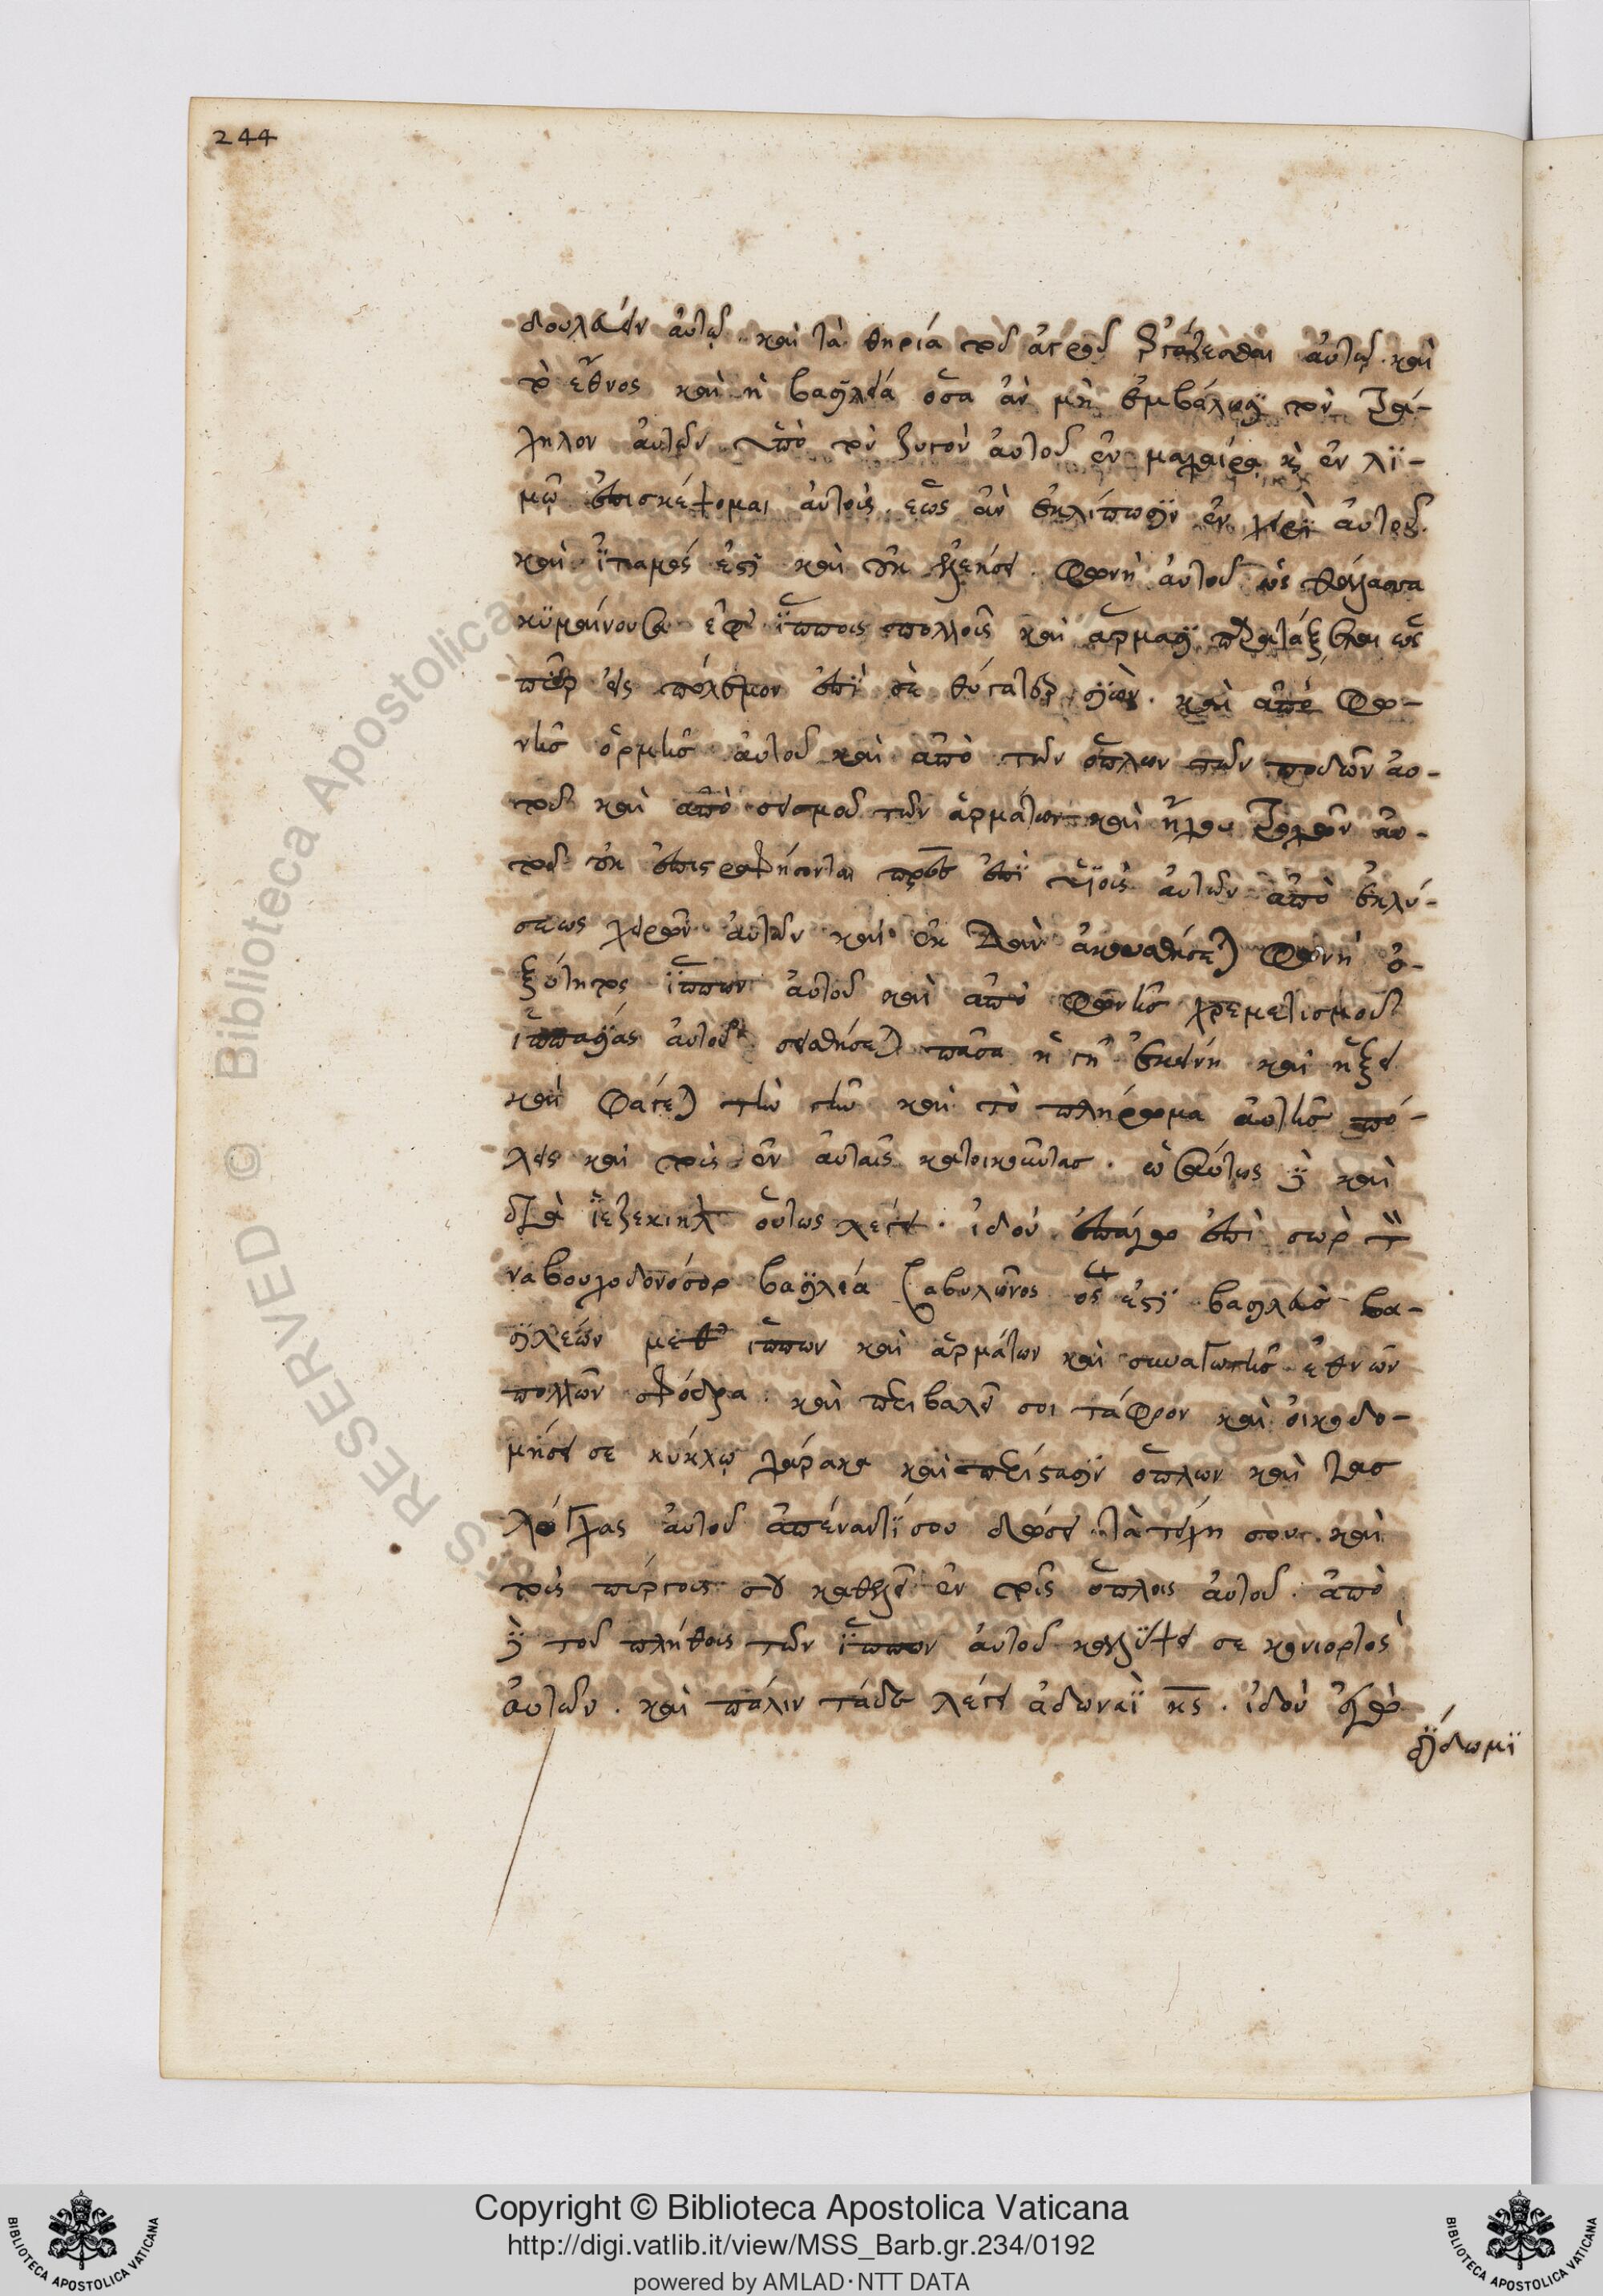 244
δουλεύειν αὐτῷ. καὶ τὰ θηρία τοῦ ἀγροῦ ἐργάζεσθαι αὐτῷ. καὶ
τὸ ἔθνος καὶ ἡ βασιλεία ὅσα ἂν μὴ ἐμβάλωσϊ τὸν τρά-
χηλον αὐτῶν ὑπὸ τὸν ζυγὸν αὐτοῦ ἐν μαχαίρᾳ κ ἐν λϊ-
μῷ ἐπισκέψομαι αὐτοὺς. ἕως ἂν ἐκλίπωσϊν ἐν χειρϊ αὐτοῦ.
καὶ ἰταμός ἐστϊ καὶ οὐκ ἐλεήσει. φωνὴ αὐτοῦ ὡς θάλασσα
κϋμαίνουσα ἐφ' ἵπποις πολλοῖς καὶ ἅρμασϊ παρατάξεται ὡς
πῦρ εἰς πόλεμον ἐπϊ σὲ θύγατερ σϊών. καὶ ἀπὸ φω-
νῆς ὁρμῆς αὐτοῦ καὶ ἀπὸ τῶν ὅπλων τῶν ποδῶν αὐ-
τοῦ καὶ ἀπὸ σεισμοῦ τῶν ἁρμάτων καὶ ἤχου τροχῶν αὐ-
τοῦ οὐκ ἐπιστραφήσονται πρες ἐπϊ υἱοὺς αὐτῶν ἀπὸ ἐκλύ-
σεως χειρῶν αὐτῶν καὶ ἐκ Δὰν ἀκουσθήσεται φωνὴ ὀ-
ξύτητος ἵππων αὐτοῦ καὶ ἀπὸ φωνῆς χρεμετισμοῦ
ἱππασϊας αὐτοῦ σεισθήσεται πᾶσα ἡ γῆ ἐκείνη καὶ ἥξει
καὶ φάγεται τὴν γῆν καὶ τὸ πλήρωμα αὐτῆς πό-
λεις καὶ τοὺς ἐν αὐταῖς κατοικοῦντας. ὡσαύτως δὲ καὶ
διὰ ἰεζεκιηλ οὕτως λέγει. ἰδοὺ ἐπάγω ἐπὶ σὼρ τὸν
ναβουχοδονόσορ βασϊλέα βαβυλῶνος ὅς ἐστϊ βασιλεὺς βα-
σϊλέων μεθ' ἵππων καὶ ἁρμάτων καὶ συναγωγῆς ἐθνῶν
πολλῶν σφόδρα. καὶ περιβαλεῖ σοι τάφρον καὶ οἰκοδο-
μήσει σε κύκλῳ χάρακα καὶ περίστασϊν ὅπλων καὶ τας
λόγχας αὐτοῦ ἀπέναντϊ σου δώσει τὰ τείχη σου. καὶ
τοὺς πύργους σου καθελεῖ ἐν τοῖς ὅπλοις αὐτοῦ. ἀπὸ
δὲ τοῦ πλήθους τῶν ἵππων αὐτοῦ καλύψει σε κονιορτὸς
αὐτῶν. καὶ πάλιν τάδε λέγει ἀδωναϊ κς. ἰδοὺ ἐγὼ
δϊδωμϊ
Copyright © Biblioteca Apostolica Vaticana
http://digi.vatlib.it/view/MSS_Barb.gr.234/0192
powered by AMLAD·NTT DATA